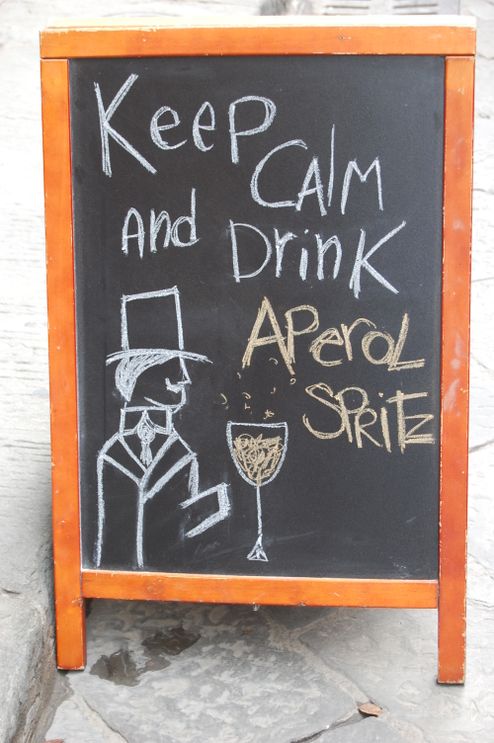 Keep
CAlM
and Drink
APeroL
SPRiTZ